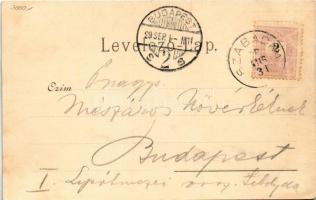 3000.-
BUDAPEST
99 SEP 1
2
SZABAD
31
Levelező-Lap.
Czim Nagys.
Mészáros Nővéreknek
Budapest
I. Lipótmezei orsz.